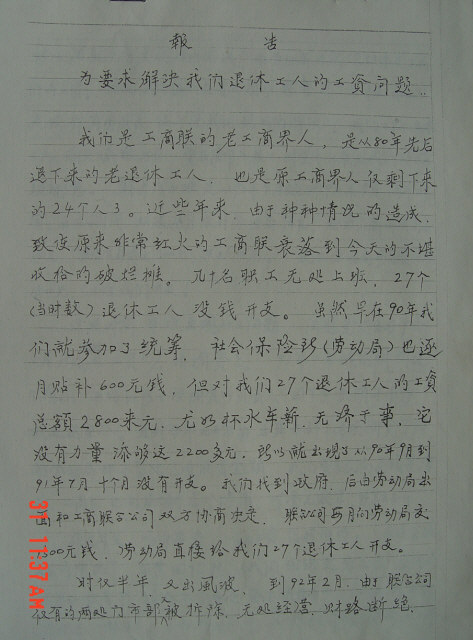 報 告
为要求解决我们退休工人的工資问题..
我们是工商联的老工商界人，是从80年先后
退下来的老退休工人，也是原工商界人仅剩下来
的24个人了。近些年来，由于种种情况的造成，
致使原来非常红火的工商联衰落到今天的不堪
收拾的破烂摊。几十名职工无处上班，27个
(当时数)退休工人没钱开支。虽然早在90年我
们就参加了统筹，社会保险所(劳动局)也逐
月贴补600元钱，但对我们27个退休工人的工資
总額2800来元，尤如杯水车薪，无济于事，它
没有力量添够这2200多元，所以就出现了从90年9月到
91年7月十个月没有开支。我们找到政府，后由劳动局出
面和工商联合公司双方协商决定，联合公司每月向劳动局交
1300元钱，劳动局直接给我们27个退休工人开支。
时仅半年，又出風波，到92年2月，由于联合公司
仅有的两处门市部又被拆除，无处经营，财路断绝，
3 1 11:37AM